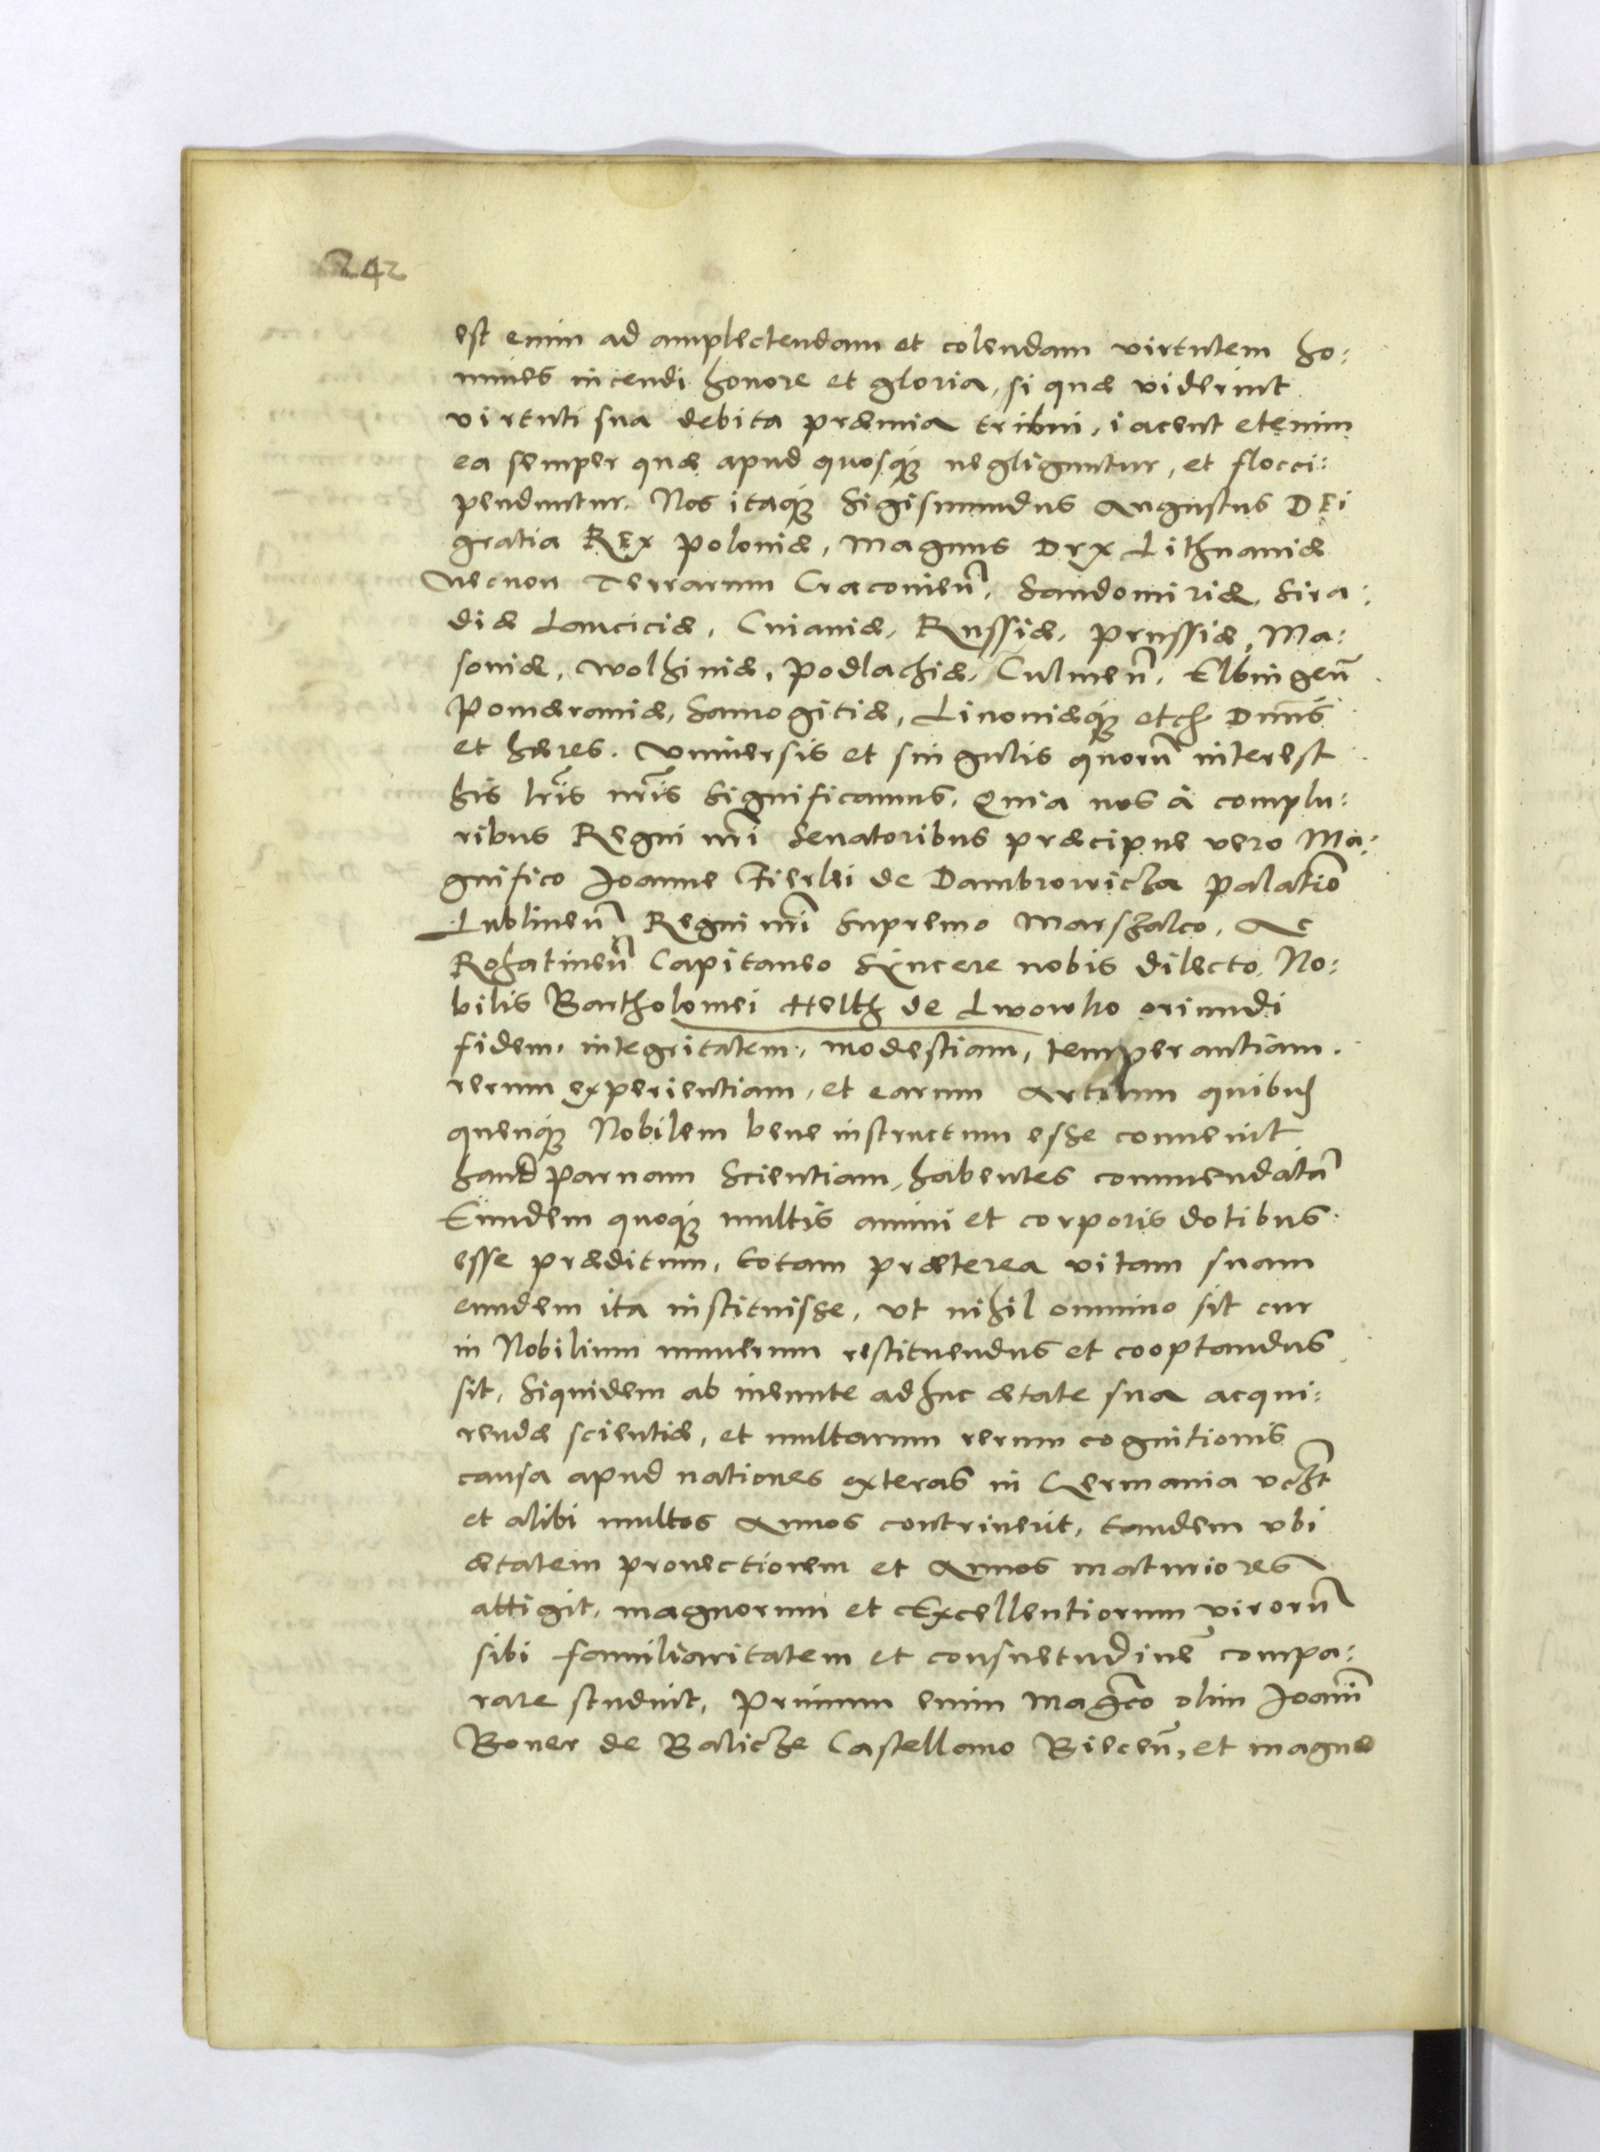 242
est enim ad amplectendam et colendam virtutem ho:
mines incendi honore et gloria, si quæ viderint
virtuti sua debita præmia tribui, iacent etenim
ea semper quæ apud quosq3 negliguntur, et flocci:
penduntur. Nos itaq3 Sigismundus Augustus DEi
gratia REx Poloniæ, Magnus Dux Lithuaniæ
Necnon Terrarum Cracovien̄, Sandomiriæ, Sira:
diæ Lanciciæ, Cuiaviæ, Russiæ, Prussiæ, Ma:
soviæ, Wolhiniæ, Podlachiæ, Culmen̄, Elbingen̄
Pomæraniæ, Samogitiæ, Livoniæq3 etc̄ Dn̄us
et hæres. Vniversis et singulis quorū interest
his lr̄is nr̄is significamus, Quia nos à complu:
ribus Regni nr̄i Senatoribus præcipue vero Ma:
gnifico Joanne Fierlei de Dambrowicza Palatino
Lublinen̄ Regni nr̄i Supremo Marszalco, Ac
Rohatinen̄ Capitaneo Syncere nobis dilecto, No:
bilis Bartholomei Helth de Lwowko oriundi
fidem, integritatem, modestiam, temperantiam.
rerum experientiam, et earum Artium quibus
quenq3 Nobilem bene instructum esse convenit
haud parvam Scientiam, habentes commendatā
Eundem quoq3 multis animi et corporis dotibus
esse præditum, totam præterea vitam suam
eundem ita instituisse, vt nihil omnino sit cur
in Nobilium numerum restituendus et cooptandus
sit, Siquidem ab ineunte adhuc ætate sua acqui:
rendæ scientiæ, et multarum rerum cognitionis
causa apud nationes exteras in Germania
et alibi multos Annos contriverit, tandem vbi
ætatem provectiorem et Annos maturiores
attigit, magnorum et Excellentiorum virorū
sibi familiaritatem et consuetudinē compa:
rare studuit, Primum enim Mag̃co olim Joanni
Boner de Balicze Castellano Biecen̄, et magno